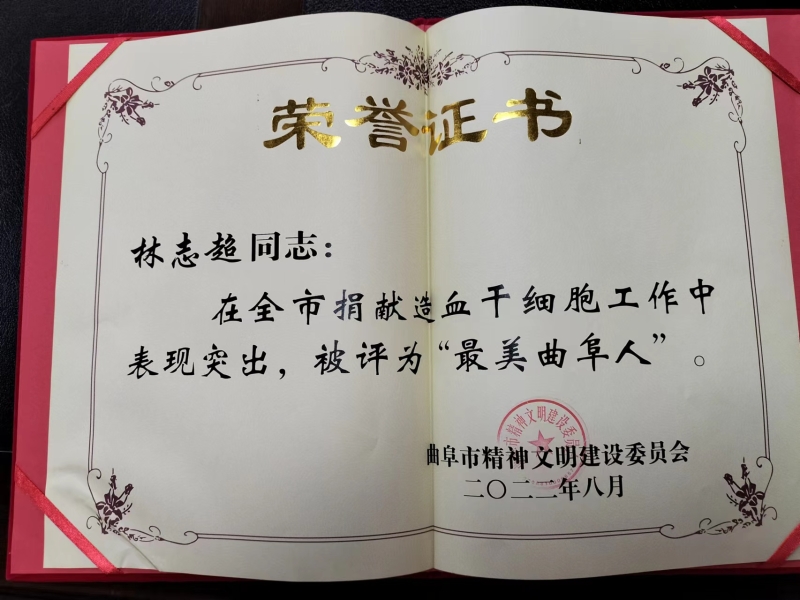 荣誉证书
林志超同志：
在全市捐献造血干细胞工作中
表现突出，被评为“最美曲阜人”。
市精神文明建设委员
曲阜市精神文明建设委员会
二〇二二年八月